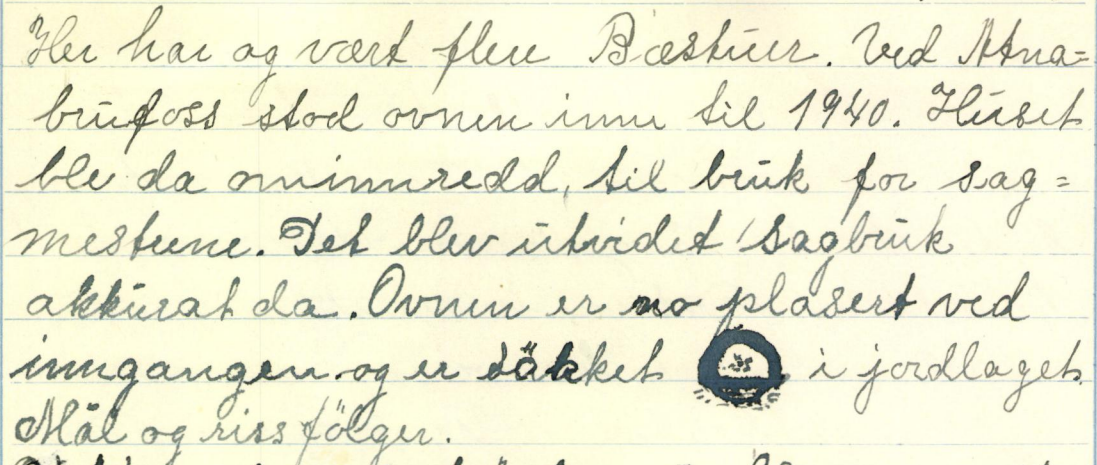 Her har og vært flere Bæstuer. Ved Atna=
brufoss stod ovnen inne til 1940. Huset
ble da ominnredd, til bruk for sag=
mestrene. Det blev utvidet sagbruk
akkurat da. Ovnen er no plasert ved
inngangen og er såkket i jordlaget.
Mål og riss følger.